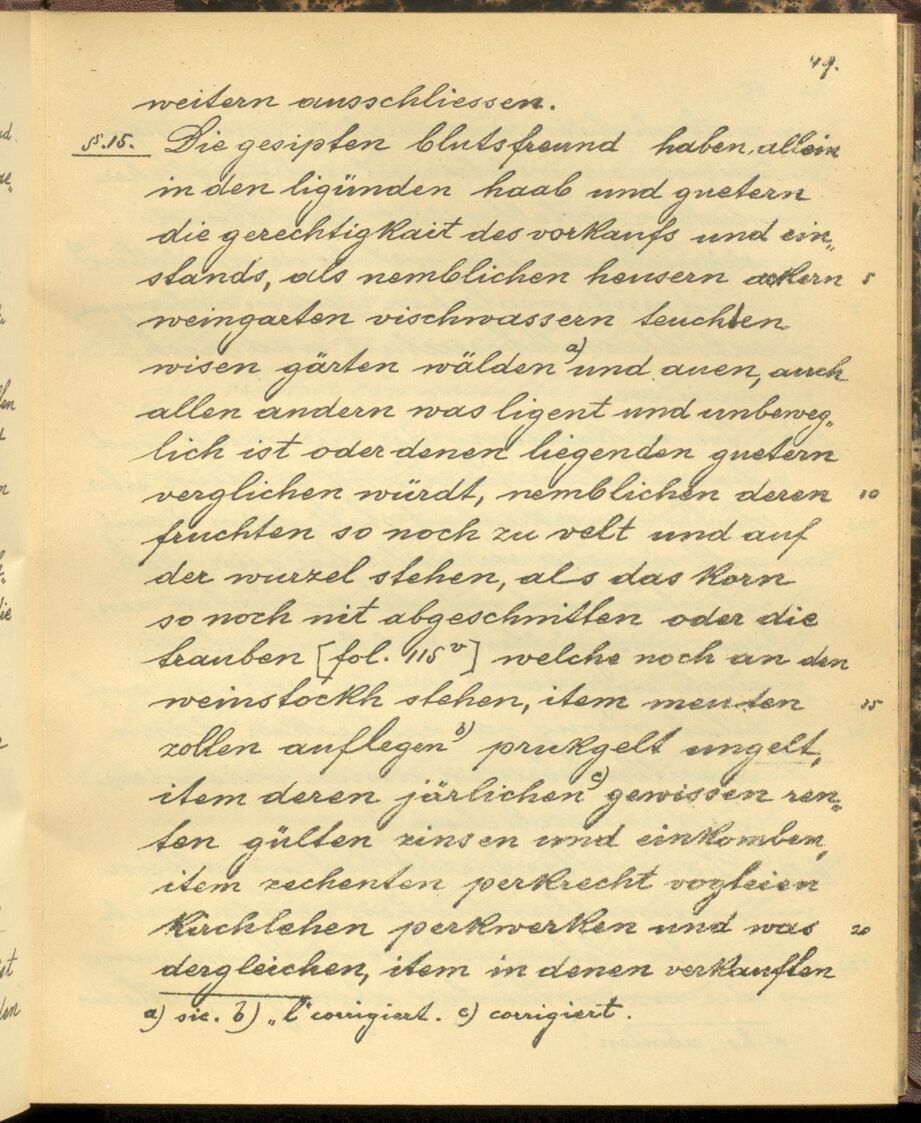 49.
weitern ausschliessen.
§.15. Die gesipten blutsfreund haben allein
in den ligünden haab und guetern
die gerechtigkait des vorkaufs und ein„
stands, als nemblichen heusern ackern 5
weingarten vischwassern teuchten
wisen gärten wälden a) und auen, auch
allen andern was ligent und unbeweg„
lich ist oder denen liegenden guetern
verglichen würdt, nemblichen deren 10
fruchten so noch zu velt und auf
der wurzel stehen, als das korn
so noch nit abgeschnitten oder die
trauben [fol. 115v] welche noch an den
weinstöckh stehen, item meuten 15
zollen auflegen b) prukgelt ungelt,
item deren järlichen c) gewissen ren„
ten gülten zinsen und einkomben,
item zechenten perkrecht vogteien
kirchlehen perkwerken und was 20
dergleichen, item in denen verkauften
a) sic. b) „l" corrigiert. c) corrigiert.